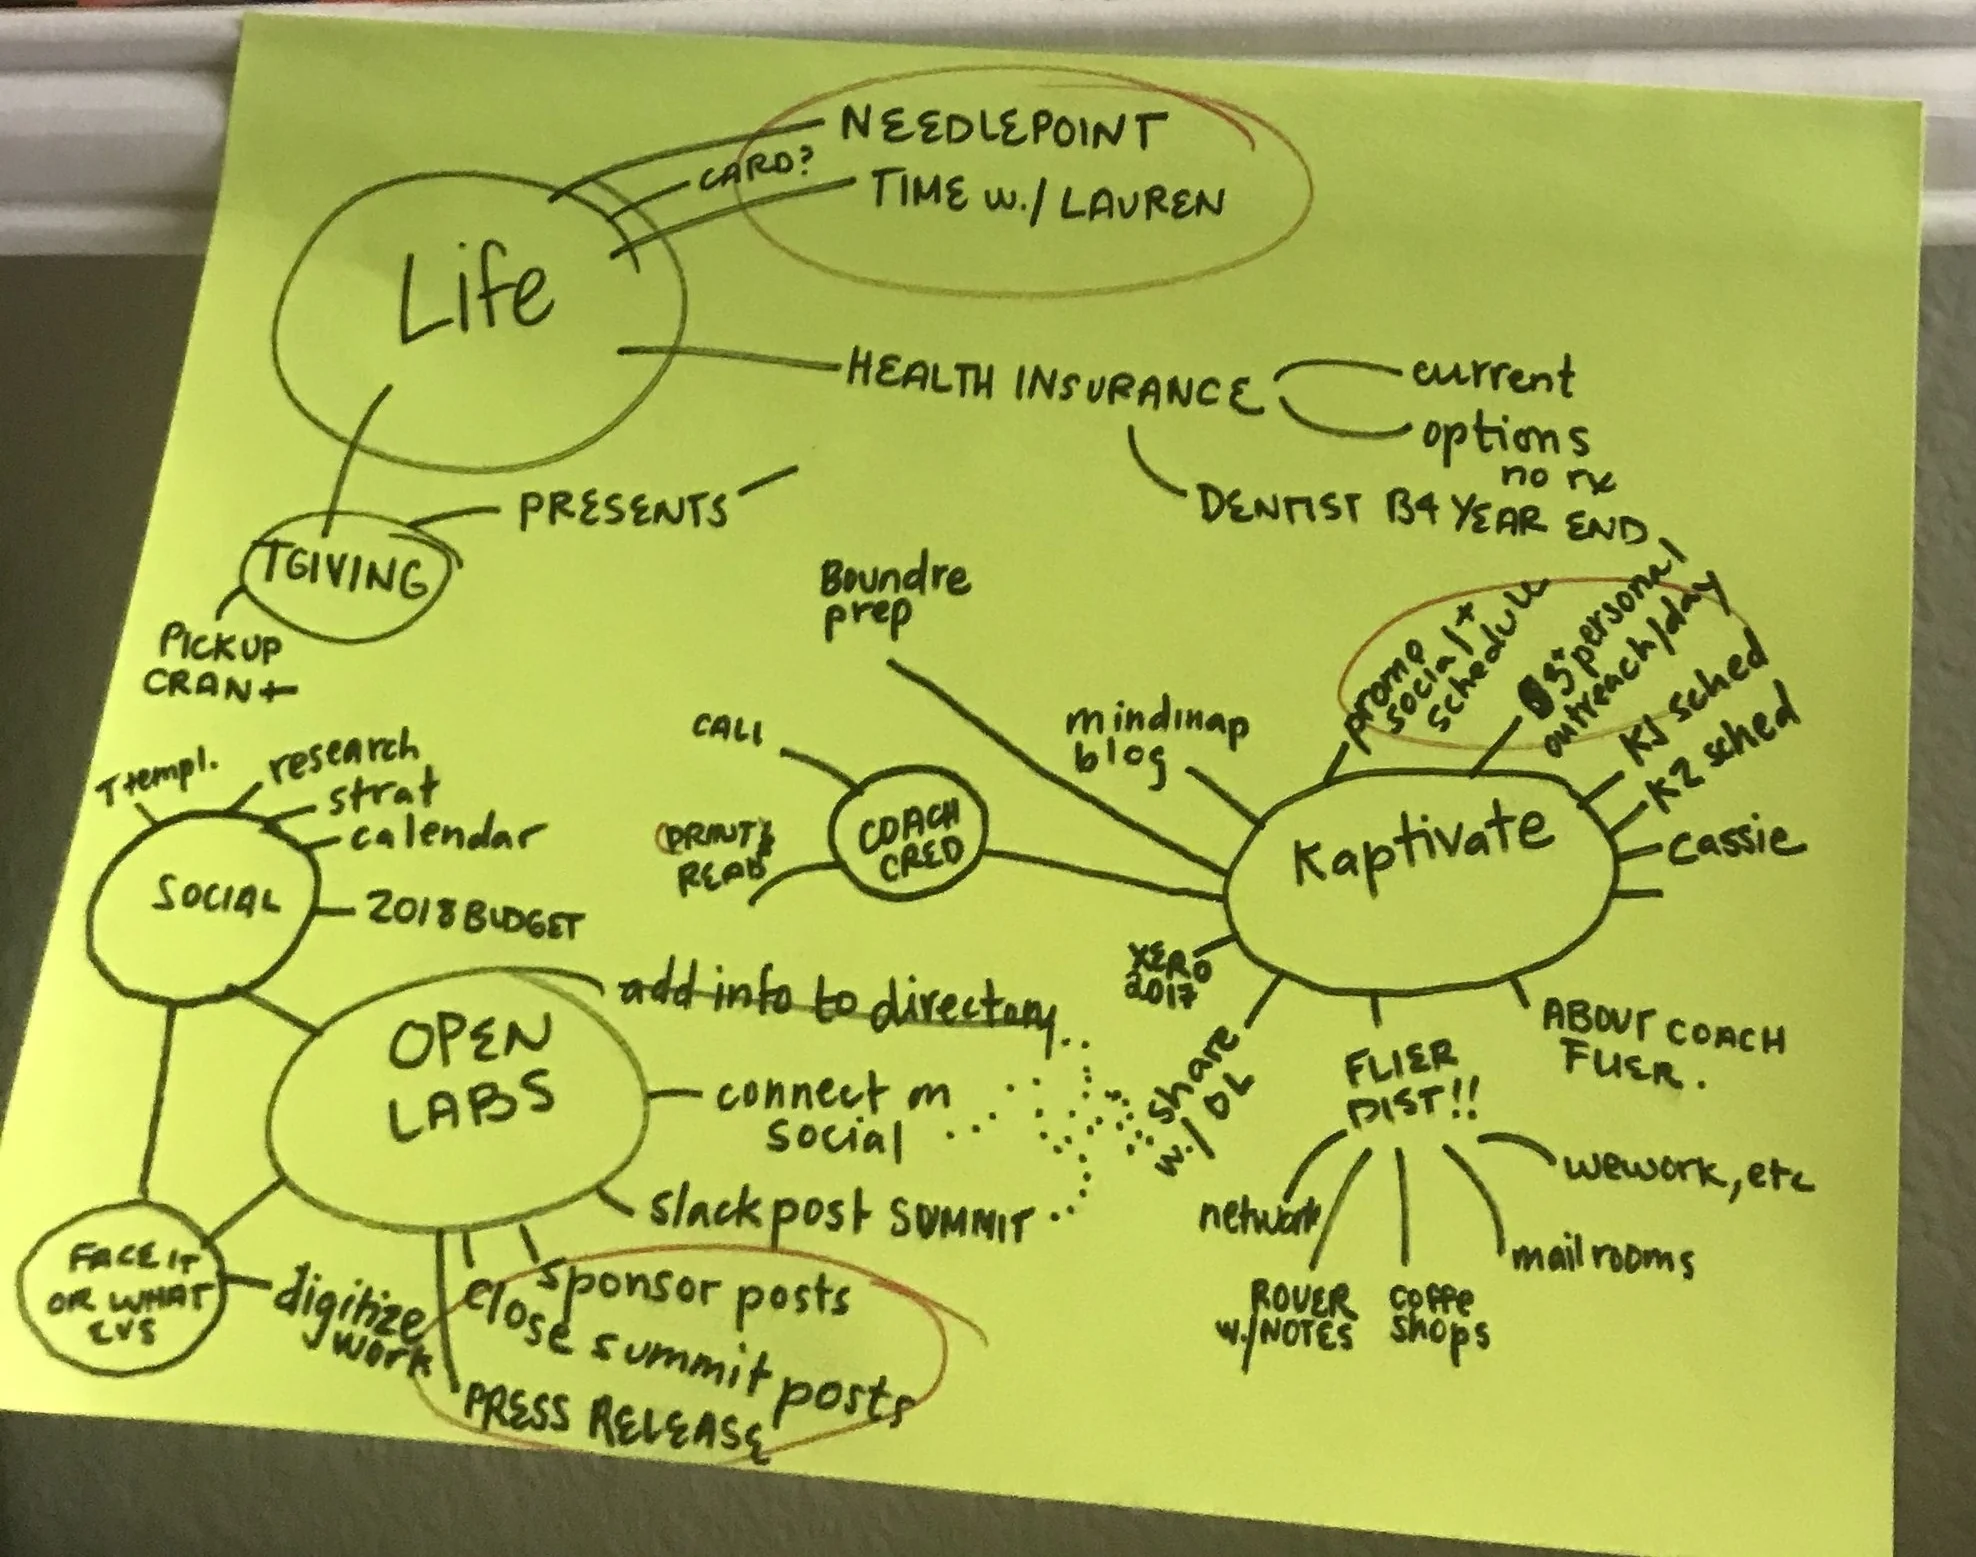 NEEDLEPOINT
CARD?
TIME w./ LAUREN
Life
HEALTH INSURANCE
current
options
no rx
DENTIST B4 YEAR END
PRESENTS
TGIVING
PICKUP
CRAN+
Boundre
prep
mindmap
blog
promo
social +
schedule
5+ personal
outreach/day
K1 sched
K2 sched
Cassie
Kaptivate
CALL
COACH
CRED
PRINT &
READ
T templ.
research
strat
calendar
SOCIAL
2018 BUDGET
XERO
2017
add info to directory
OPEN
LABS
connect on
social
share
w./ OL
FLIER
DIST!!
ABOUT COACH
FLIER.
slack post SUMMIT
network
ROVER
w./NOTES
coffe
shops
mail rooms
wework, etc
FACE IT
OR WHAT
EVS
digitize
work
sponsor posts
close summit posts
PRESS RELEASE